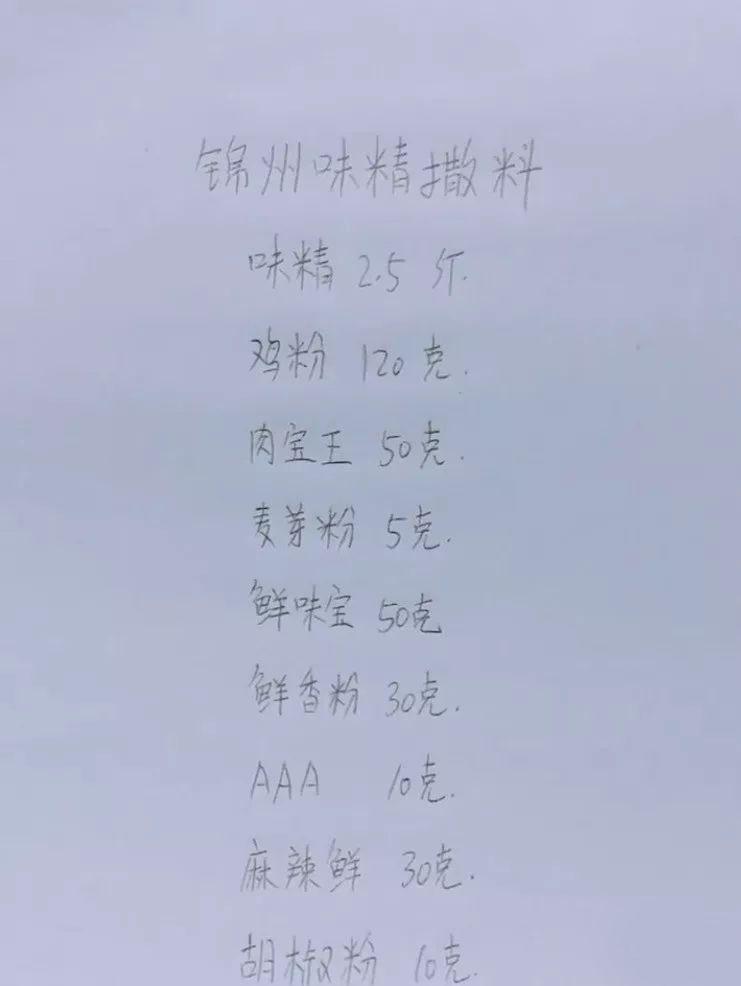 锦州味精撒料
味精 2.5 斤.
鸡粉 120克.
肉宝王 50克.
麦芽粉 5克.
鲜味宝 50克
鲜香粉 30克.
AAA 10克.
麻辣鲜 30克.
胡椒粉 10克.